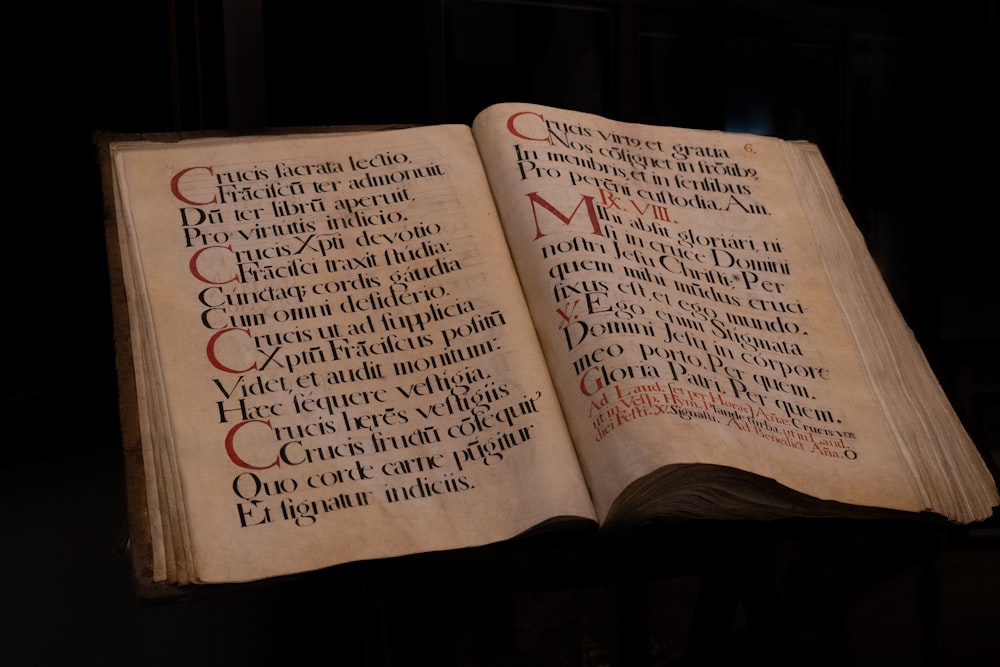 Crucis ſacrata lectio,
Frāciſcū ter admonuit
Dū ter librū aperuit,
Pro virtutis indicio.
Crucis Xp̄ti devótio
Frāciſci traxit ſtúdia:
Cūnctaq; cordis gáudia
Cum omni deſidério.
Crucis ut ad ſupplicia
Xp̄tū Frāciſcus poſitū
Videt, et audit monitum:
Hæc ſéquere veſtígia.
Crucis herēs veſtigiis
Crucis fructū cōſequit
Quo corde carne pūgitur
Et ſignatur indiciis.
6.
Crucis virt9, et gratia
Nos cōſignet in frōtib9
In membris, et in ſenſibus
Pro perēni cuſtodia. Am.
℟. VIII.
Mihi abſit gloriari, ni-
ſi in cruce Domini
noſtri Jeſu Chriſti: * Per
quem mihi mūdus cruci-
fixus eſt, et ego mundo.
℣. Ego enim Stigmata
Domini Jeſu in córpore
meo porto. Per quem.
Gloria Patri. Per quem.
Ad Laud. et per Horas Aña. Crucis vox
in Veſp. Hym. Plaude turba. ut in Laud.
℣. Signaſti. Ad Benedict. Aña. O